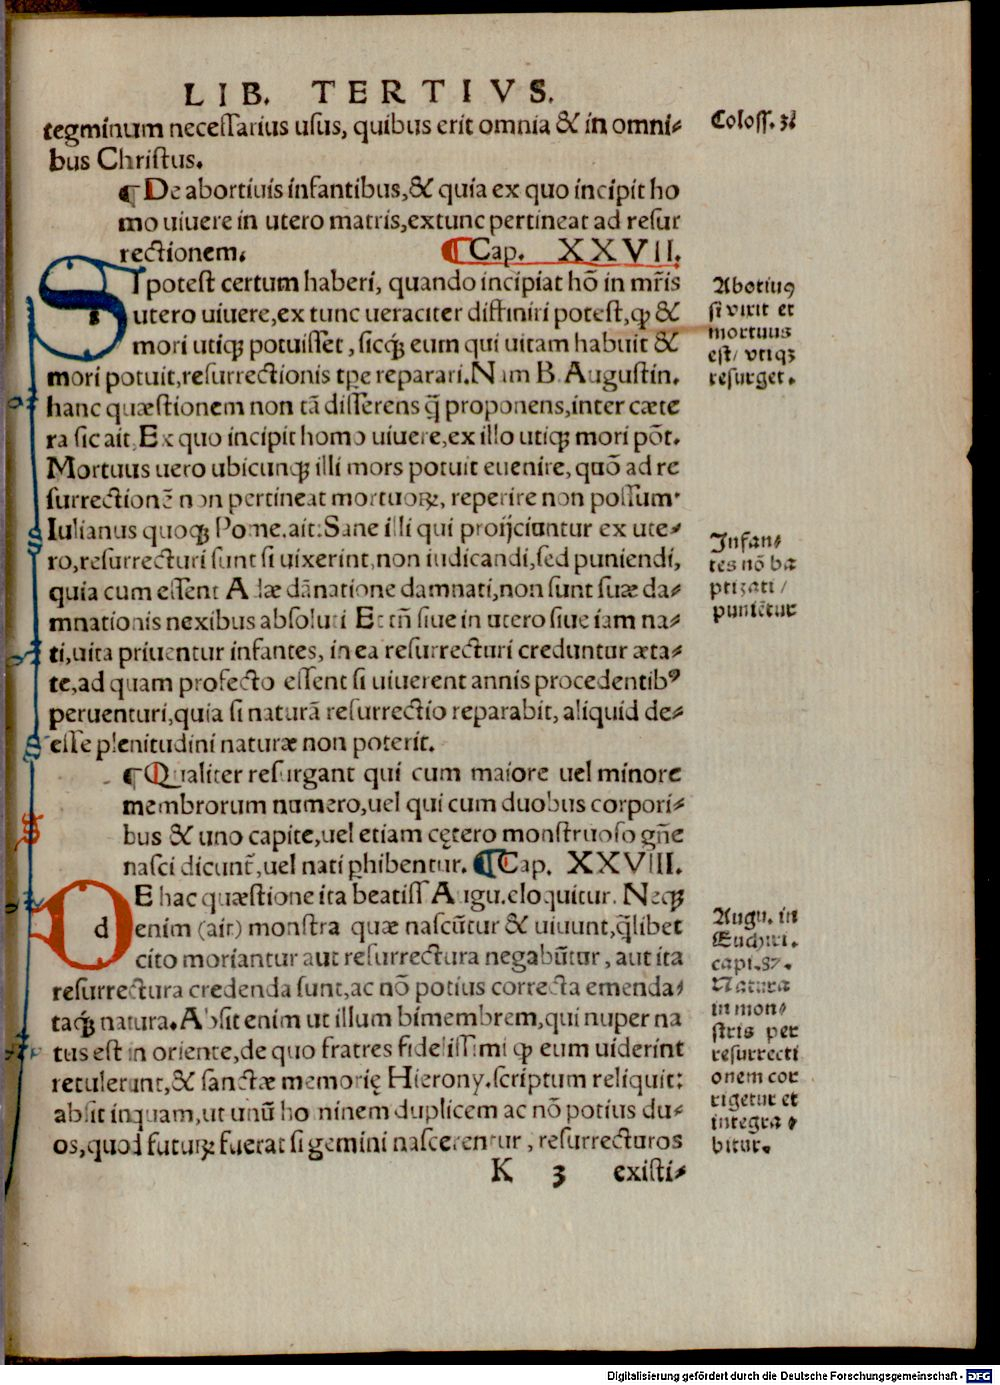 LIB. TERTIVS.
tegminum necessarius usus, quibus erit omnia & in omni-
bus Christus.
Coloss. 3
¶ De abortiuis infantibus,& quia ex quo incipit ho
mo uiuere in utero matris,extunc pertineat ad resur
rectionem. ¶ Cap. XXVII.
SI potest certum haberi, quando incipiat hõ in mr̃is
utero uiuere,ex tunc ueraciter diffiniri potest,ꝙ &
mori utiqꝫ potuisset, sicqꝫ eum qui uitam habuit &
mori potuit,resurrectionis tpe reparari.Nam B. Augustin.
hanc quæstionem non tã disserens q̃ proponens,inter cæte
ra sic ait. Ex quo incipit homo uiuere,ex illo utiqꝫ mori põt.
Mortuus uero ubicunqꝫ illi mors potuit euenire, quõ ad re
surrectionẽ non pertineat mortuoꝝ, reperire non possum.
Iulianus quoqꝫ Pome.ait:Sane illi qui proijciuntur ex ute-
ro,resurrecturi sunt si uixerint,non iudicandi,sed puniendi,
quia cum essent Adæ dãnatione damnati,non sunt suæ da-
mnationis nexibus absoluti Et tñ siue in utero siue iam na-
ti,uita priuentur infantes, in ea resurrecturi creduntur æta-
te,ad quam profecto essent si uiuerent annis procedentibꝰ
peruenturi,quia si naturã resurrectio reparabit, aliquid de-
esse plenitudini naturæ non poterit.
Abotiuꝯ
si vixit et
mortuus
est/ vtiqꝫ
resurget.
Infan-
tes nõ ba
ptizati /
puniẽtur
¶ Qualiter resurgant qui cum maiore uel minore
membrorum numero,uel qui cum duobus corpori-
bus & uno capite,uel etiam cętero monstruoso gñe
nasci dicunt̃,uel nati ꝓhibentur. ¶ Cap. XXVIII.
DE hac quæstione ita beatiss Augu.eloquitur. Neqꝫ
d enim (ait) monstra quæ nascũtur & uiuunt,q̃libet
cito moriantur aut resurrectura negabũtur, aut ita
resurrectura credenda sunt,ac nõ potius correcta emenda-
taqꝫ natura.Absit enim ut illum bimembrem,qui nuper na
tus est in oriente,de quo fratres fidelissimi ꝙ eum uiderint
retulerunt,& sanctæ memorię Hierony.scriptum reliquit:
absit inquam,ut unũ hominem duplicem ac nõ potius du-
os,quod futuꝝ fuerat si gemini nascerentur, resurrecturos
Augu. in
Enchiri.
capi.87.
Natura
in mon-
stris per
resurrecti
onem cor
rigetur et
integra
bitur.
K 3 existi-
Digitalisierung gefördert durch die Deutsche Forschungsgemeinschaft - DFG